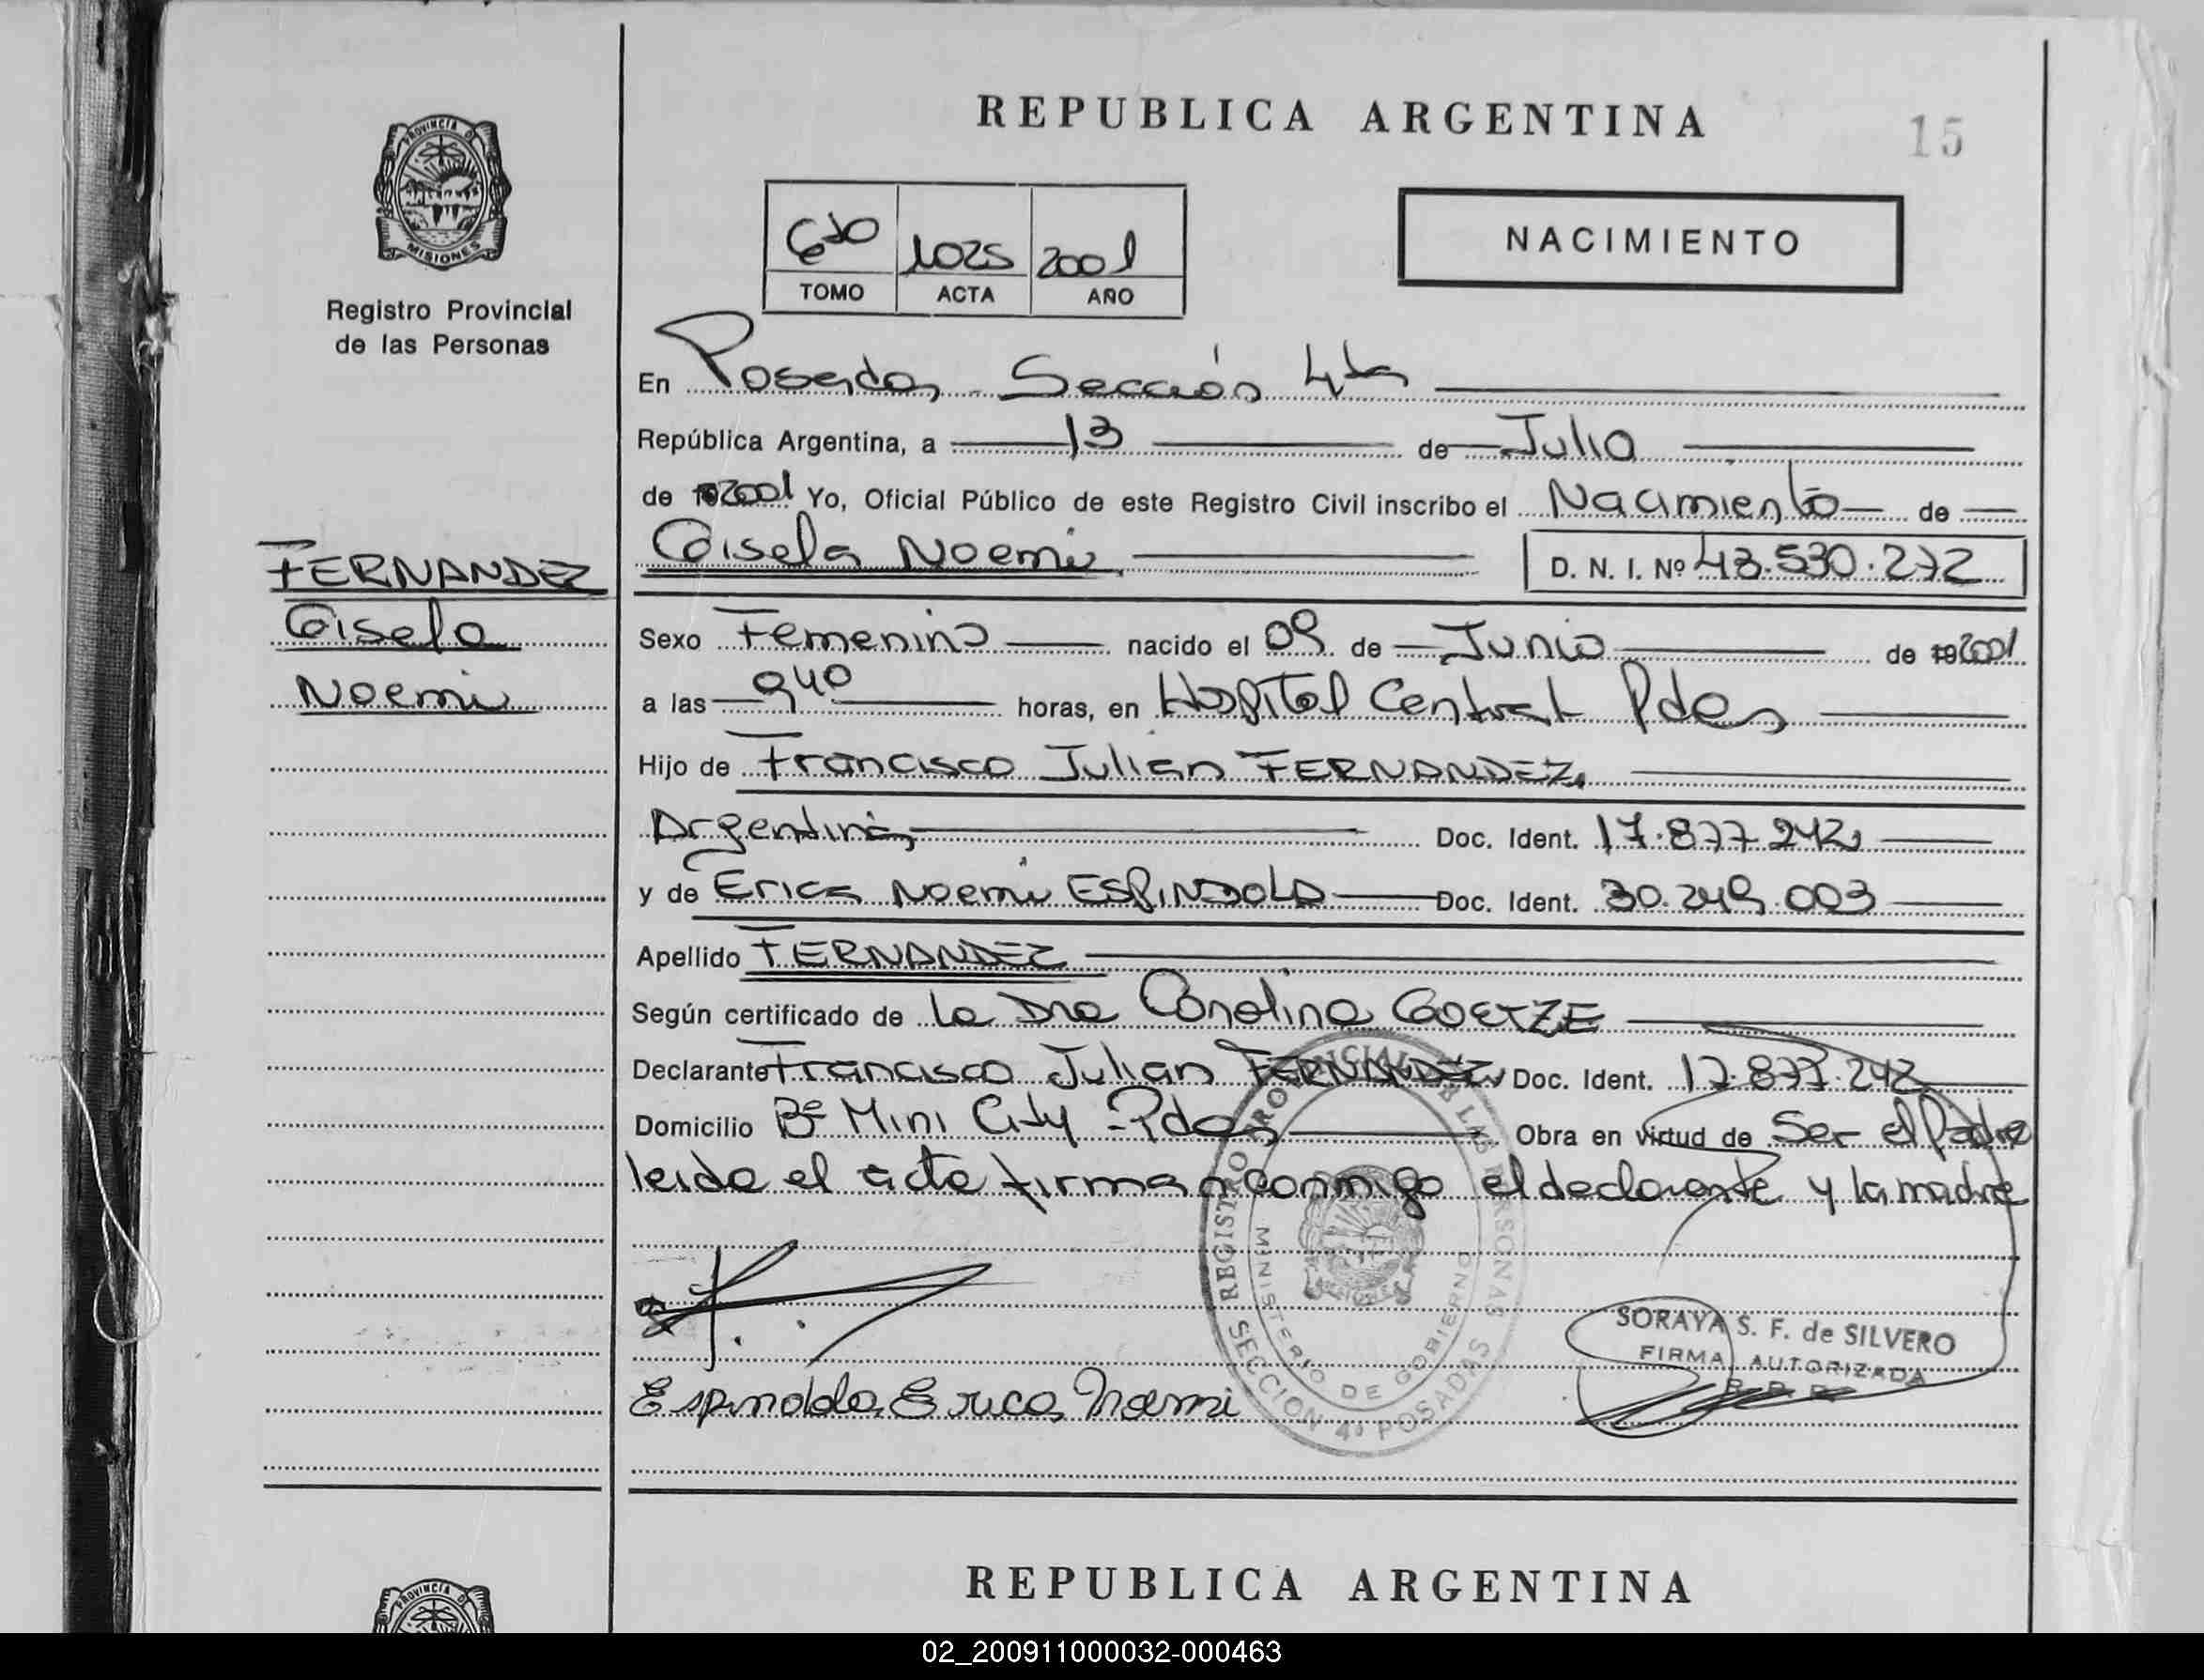 REPUBLICA ARGENTINA
15
PROVINCIA DE
MISIONES
Registro Provincial
de las Personas
6to 1025 2001
TOMO ACTA AÑO
NACIMIENTO
En Posadas - Sección 4ta
República Argentina, a 13 de Julio
de 2001 Yo, Oficial Público de este Registro Civil inscribo el Nacimiento de
Gisela Noemi D. N. I. Nº 43.530.272
FERNANDEZ
Gisela
Noemi
Sexo Femenino nacido el 09 de Junio de 2001
a las 940 horas, en Hospital Central Pdas
Hijo de Francisco Julian FERNANDEZ,
Argentino, Doc. Ident. 17.877.242,
y de Erica Noemi ESPINDOLA Doc. Ident. 30.249.003
Apellido FERNANDEZ
Según certificado de La Dra Carolina GOETZE
Declarante Francisco Julian FERNANDEZ, Doc. Ident. 17.877.242
Domicilio Bº Mini City - Pdas Obra en virtud de Ser el Padre
leida el acta firman conmigo el declarante y la madre
REGISTRO PROVINCIAL DE LAS PERSONAS
MINISTERIO DE GOBIERNO
SECCION 4ª POSADAS
SORAYA S. F. de SILVERO
FIRMA AUTORIZADA
Espindola Erica Noemi
REPUBLICA ARGENTINA
PROVINCIA DE
02_200911000032-000463